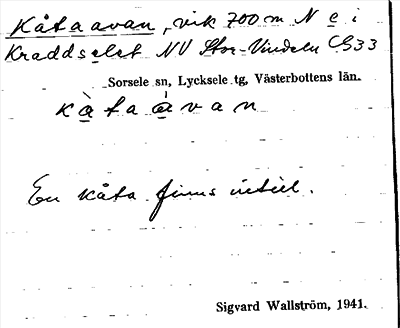 Kåtaavan, vik 700 m N e i
Kraddselet NV Stor-Vindeln C33
Sorsele sn, Lycksele tg, Västerbottens län.
kå̀taávan
En kåta finns intill.
Sigvard Wallström, 1941.